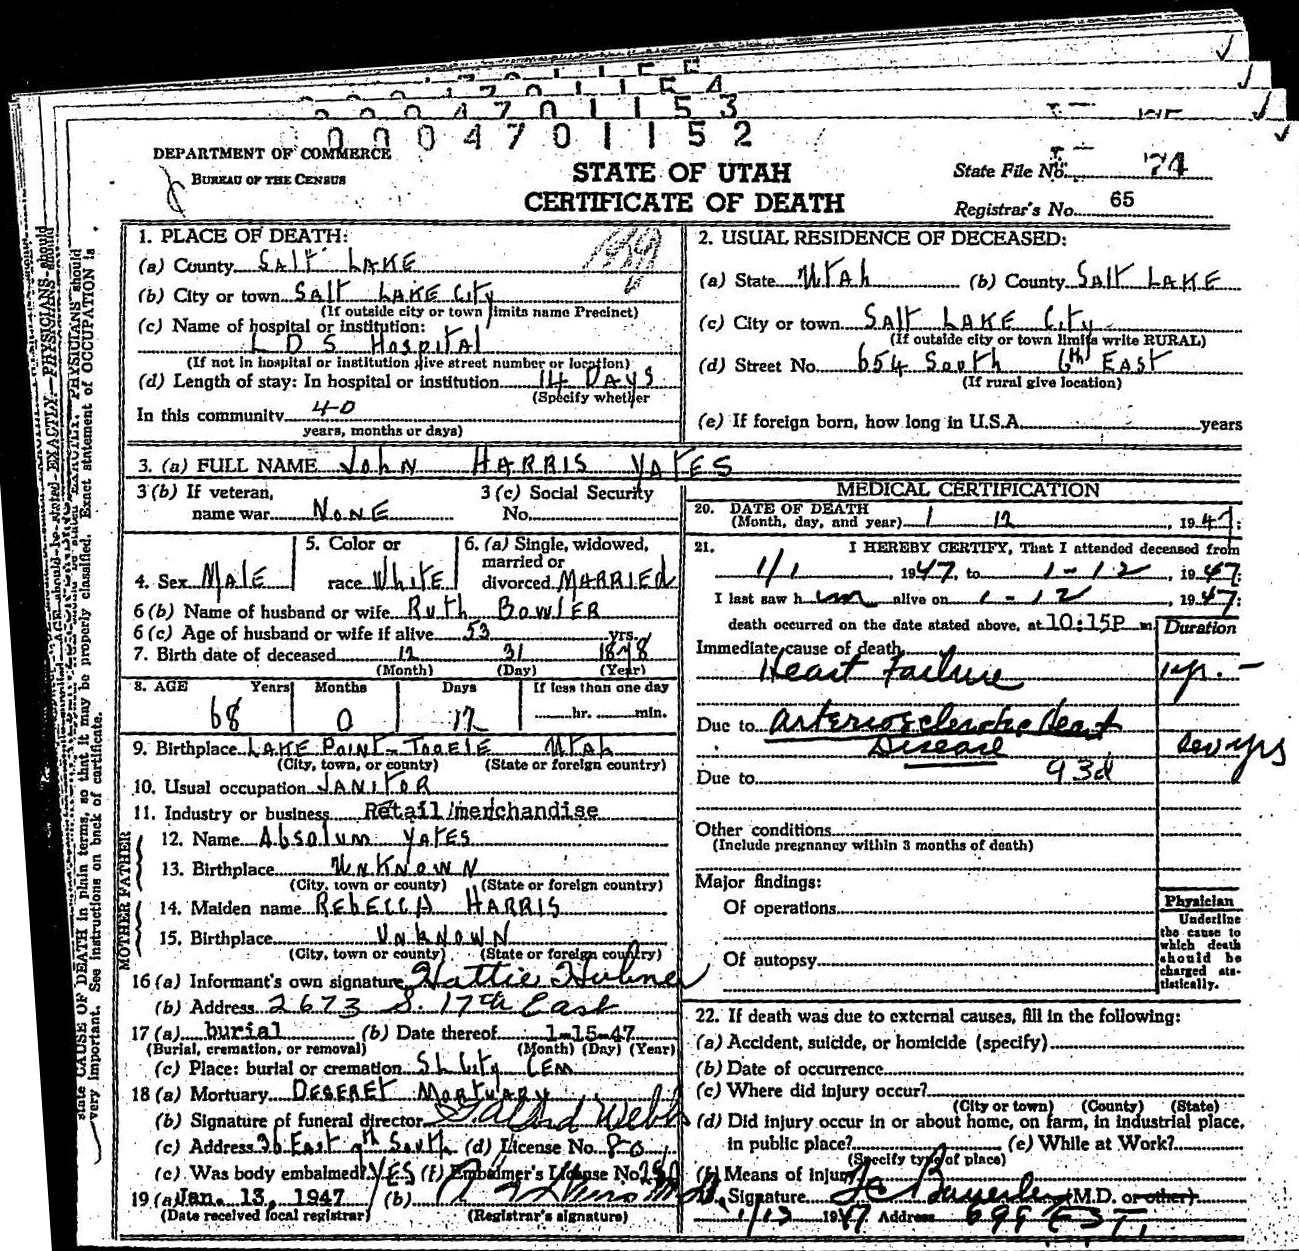 0004701153
0004701152
DEPARTMENT OF COMMERCE
BUREAU OF THE CENSUS
STATE OF UTAH
CERTIFICATE OF DEATH
State File No. 74
Registrar's No. 65
1. PLACE OF DEATH:
(a) County SALT LAKE
(b) City or town SALT LAKE CITY
(If outside city or town limits name Precinct)
(c) Name of hospital or institution:
L D S HOSPITAL
(If not in hospital or institution give street number or location)
(d) Length of stay: In hospital or institution 14 DAYS
(Specify whether
In this community 40
years, months or days)
2. USUAL RESIDENCE OF DECEASED:
(a) State UTAH (b) County SALT LAKE
(c) City or town SALT LAKE CITY
(If outside city or town limits write RURAL)
(d) Street No. 654 South 6th EAST
(If rural give location)
(e) If foreign born, how long in U.S.A. years
3. (a) FULL NAME JOHN HARRIS YATES
3 (b) If veteran, name war NONE
3 (c) Social Security No.
4. Sex MALE
5. Color or race WHITE
6. (a) Single, widowed, married or divorced MARRIED
6 (b) Name of husband or wife RUTH BOWLER
6 (c) Age of husband or wife if alive 53 yrs.
7. Birth date of deceased 12 31 1878
(Month) (Day) (Year)
8. AGE Years Months Days If less than one day
68 0 12 hr. min.
9. Birthplace LAKE POINT-TOOELE UTAH
(City, town, or county) (State or foreign country)
10. Usual occupation JANITOR
11. Industry or business Retail merchandise
FATHER
12. Name Absolum YATES
13. Birthplace UNKNOWN
(City, town or county) (State or foreign country)
MOTHER
14. Maiden name REBECCA HARRIS
15. Birthplace UNKNOWN
(City, town or county) (State or foreign country)
16 (a) Informant's own signature Hattie Hubner
(b) Address 2673 S. 17th East
17 (a) burial (b) Date thereof 1-15-47
(Burial, cremation, or removal) (Month) (Day) (Year)
(c) Place: burial or cremation SL City CEM
18 (a) Mortuary DESERET MORTUARY
(b) Signature of funeral director Webb
(c) Address 36 East 7th South (d) License No. 80
(e) Was body embalmed? YES (f) Embalmer's License No.
19 (a) Jan. 13, 1947 (b)
(Date received local registrar) (Registrar's signature)
MEDICAL CERTIFICATION
20. DATE OF DEATH
(Month, day, and year) 1 12, 1947:
21. I HEREBY CERTIFY, That I attended deceased from
1/1, 1947, to 1-12, 1947:
I last saw him alive on 1-12, 1947:
death occurred on the date stated above, at 10:15P m.
Duration
Immediate cause of death
Heart Failure 1 yr. -
Due to Arteriosclerotic Heart
Disease yrs
Due to 93d
Other conditions
(Include pregnancy within 3 months of death)
Major findings:
Of operations
Of autopsy
Physician
Underline
the cause to
which death
should be
charged sta-
tistically.
22. If death was due to external causes, fill in the following:
(a) Accident, suicide, or homicide (specify)
(b) Date of occurrence
(c) Where did injury occur?
(City or town) (County) (State)
(d) Did injury occur in or about home, on farm, in industrial place,
in public place? (e) While at Work?
(Specify type of place)
(f) Means of injury
Signature (M.D. or other)
1/13 1947 Address
very important. See instructions on back of certificate.